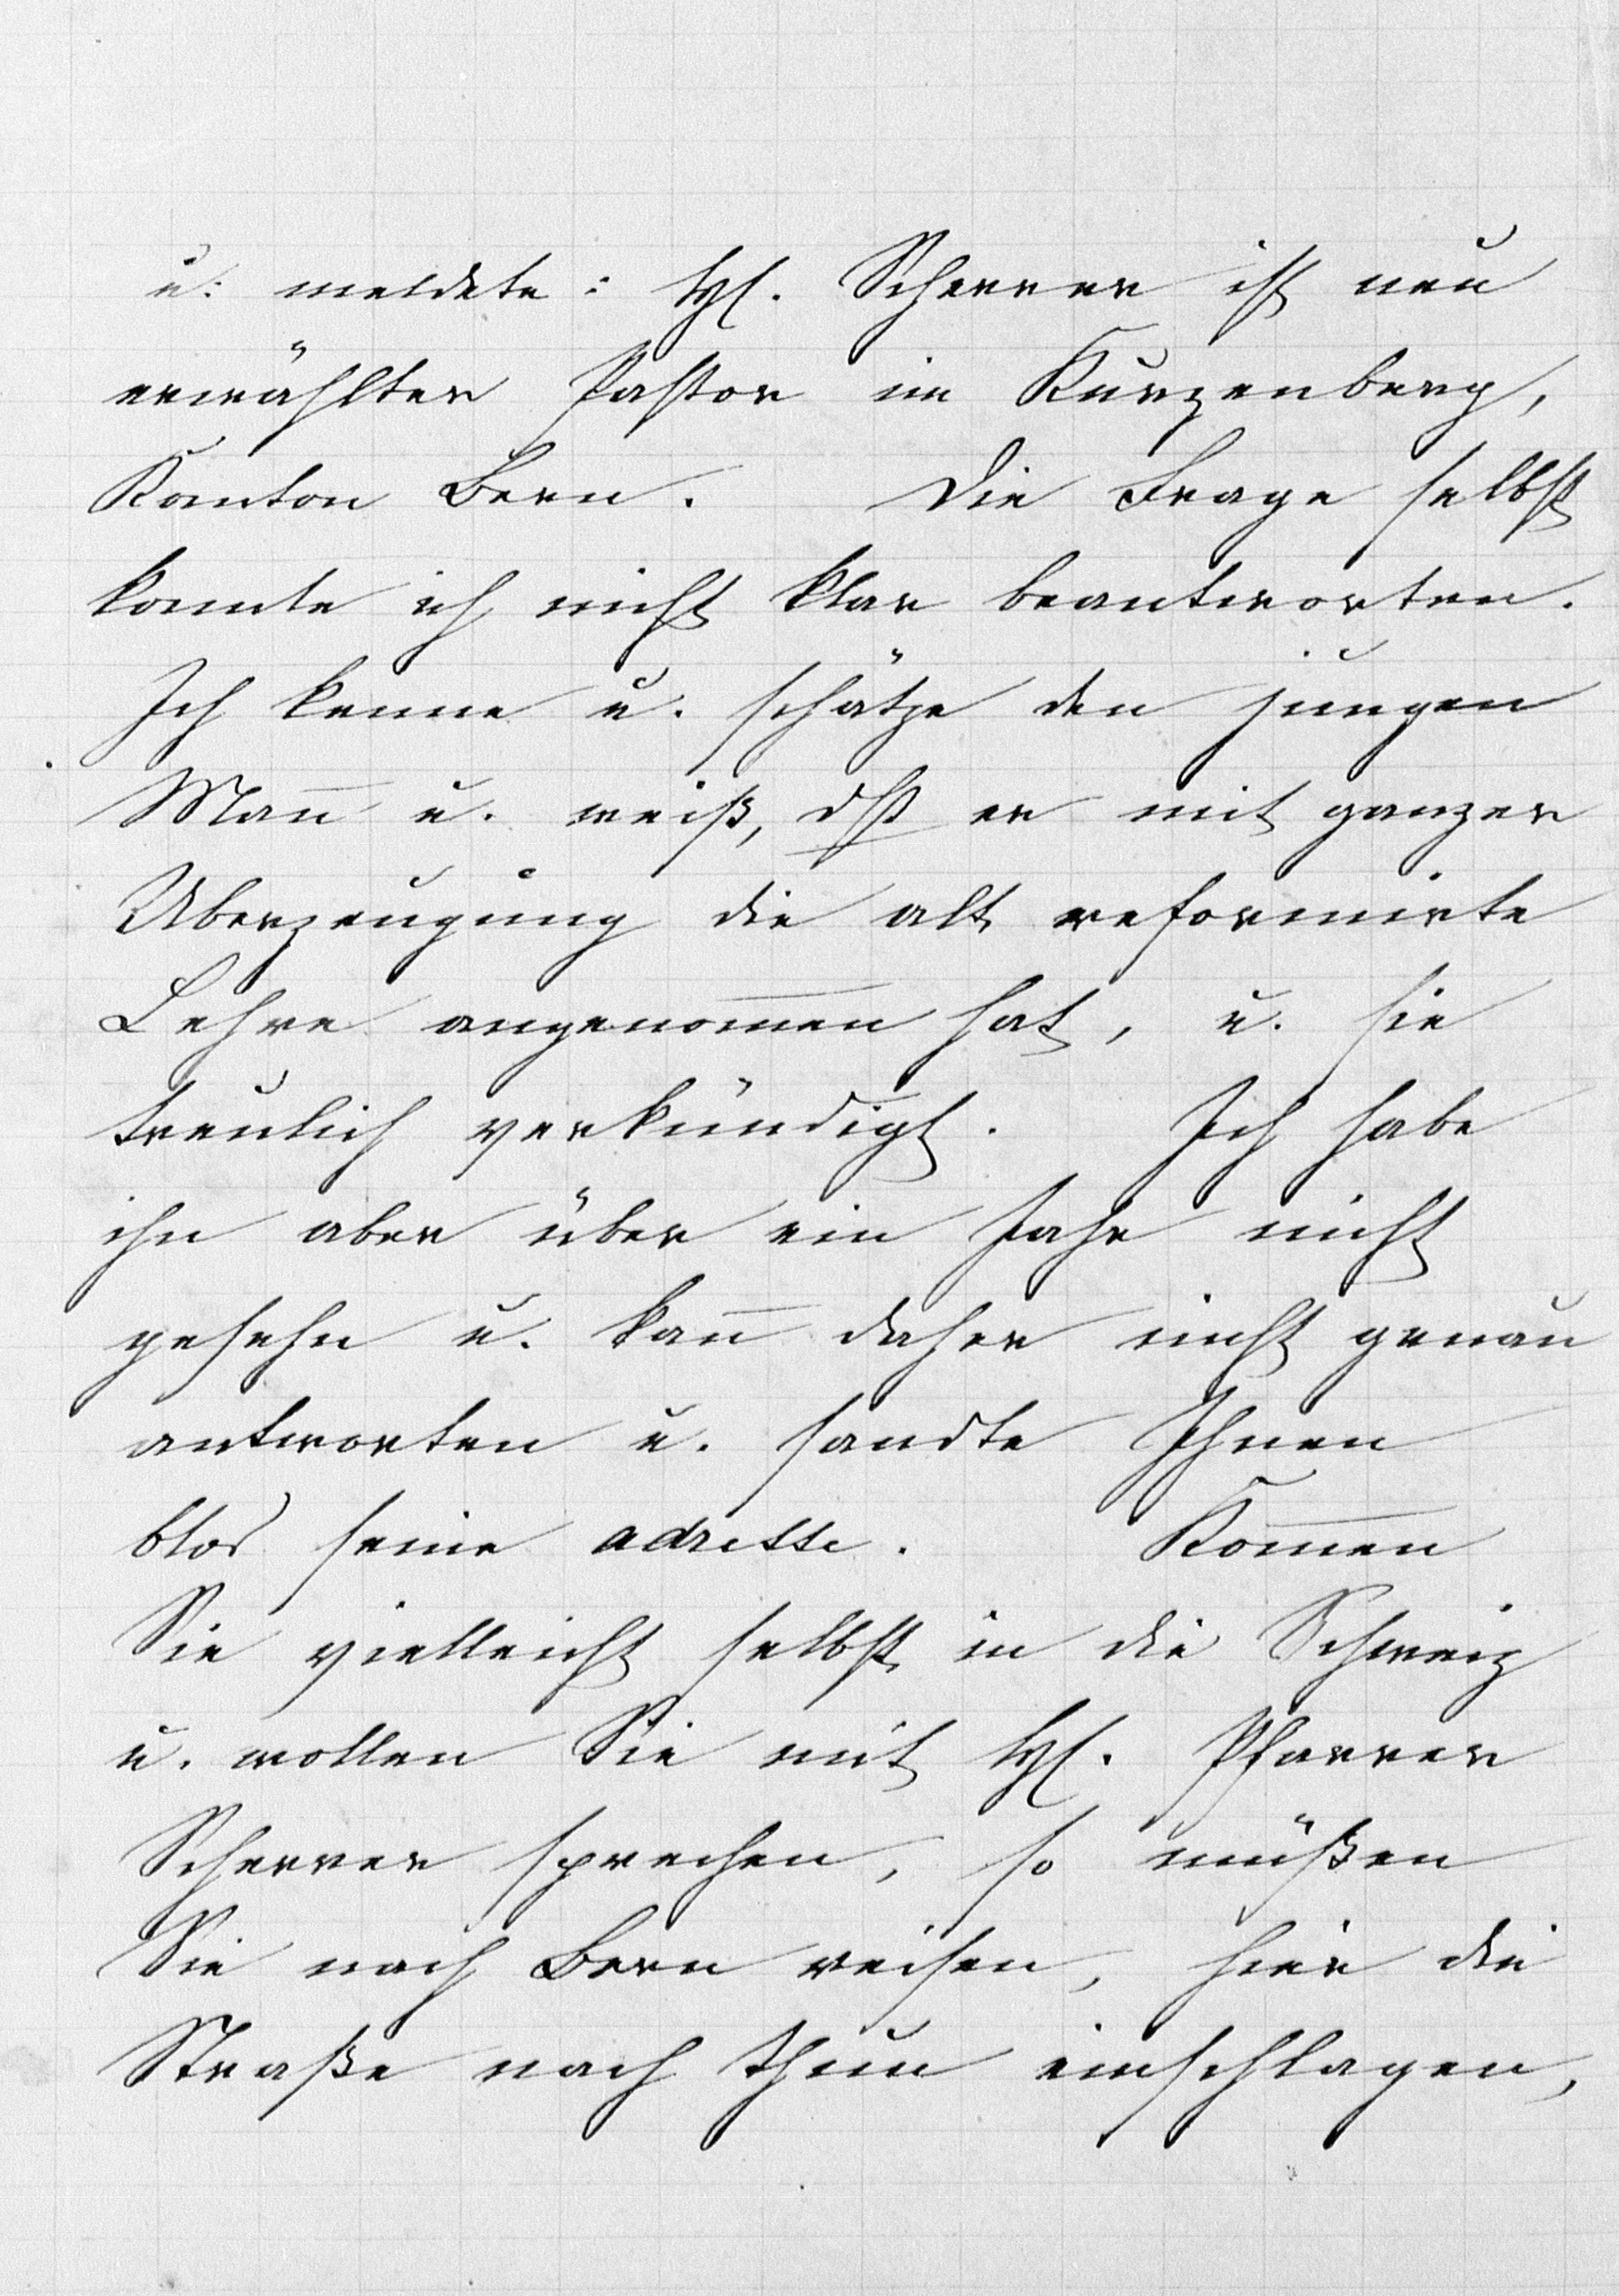 u. meldete: H. Scherrer ist neu
erwählter Pastor im Kurzenberg,
Kanton Bern. Die Frage selbst
konnte ich nicht klar beantworten.
Ich kenne u. schätze den jungen
Mañ u. weiß, dß er mit ganzer
Überzeugung die alt reformirte
Lehre angenom̅en hat, u. sie
treulich verkündigt. Ich habe
ihn aber über ein Jahr nicht
gesehn u. kañ daher nicht genau
antworten u. sandte Ihnen
blos seine adresse. Kom̅en
Sie vielleicht selbst in die Schweiz
u. wollen Sie mit H. Pfarrer
Scherrer sprechen, so müßen
Sie nach Bern reisen, hier die
Straße nach Thun einschlagen,